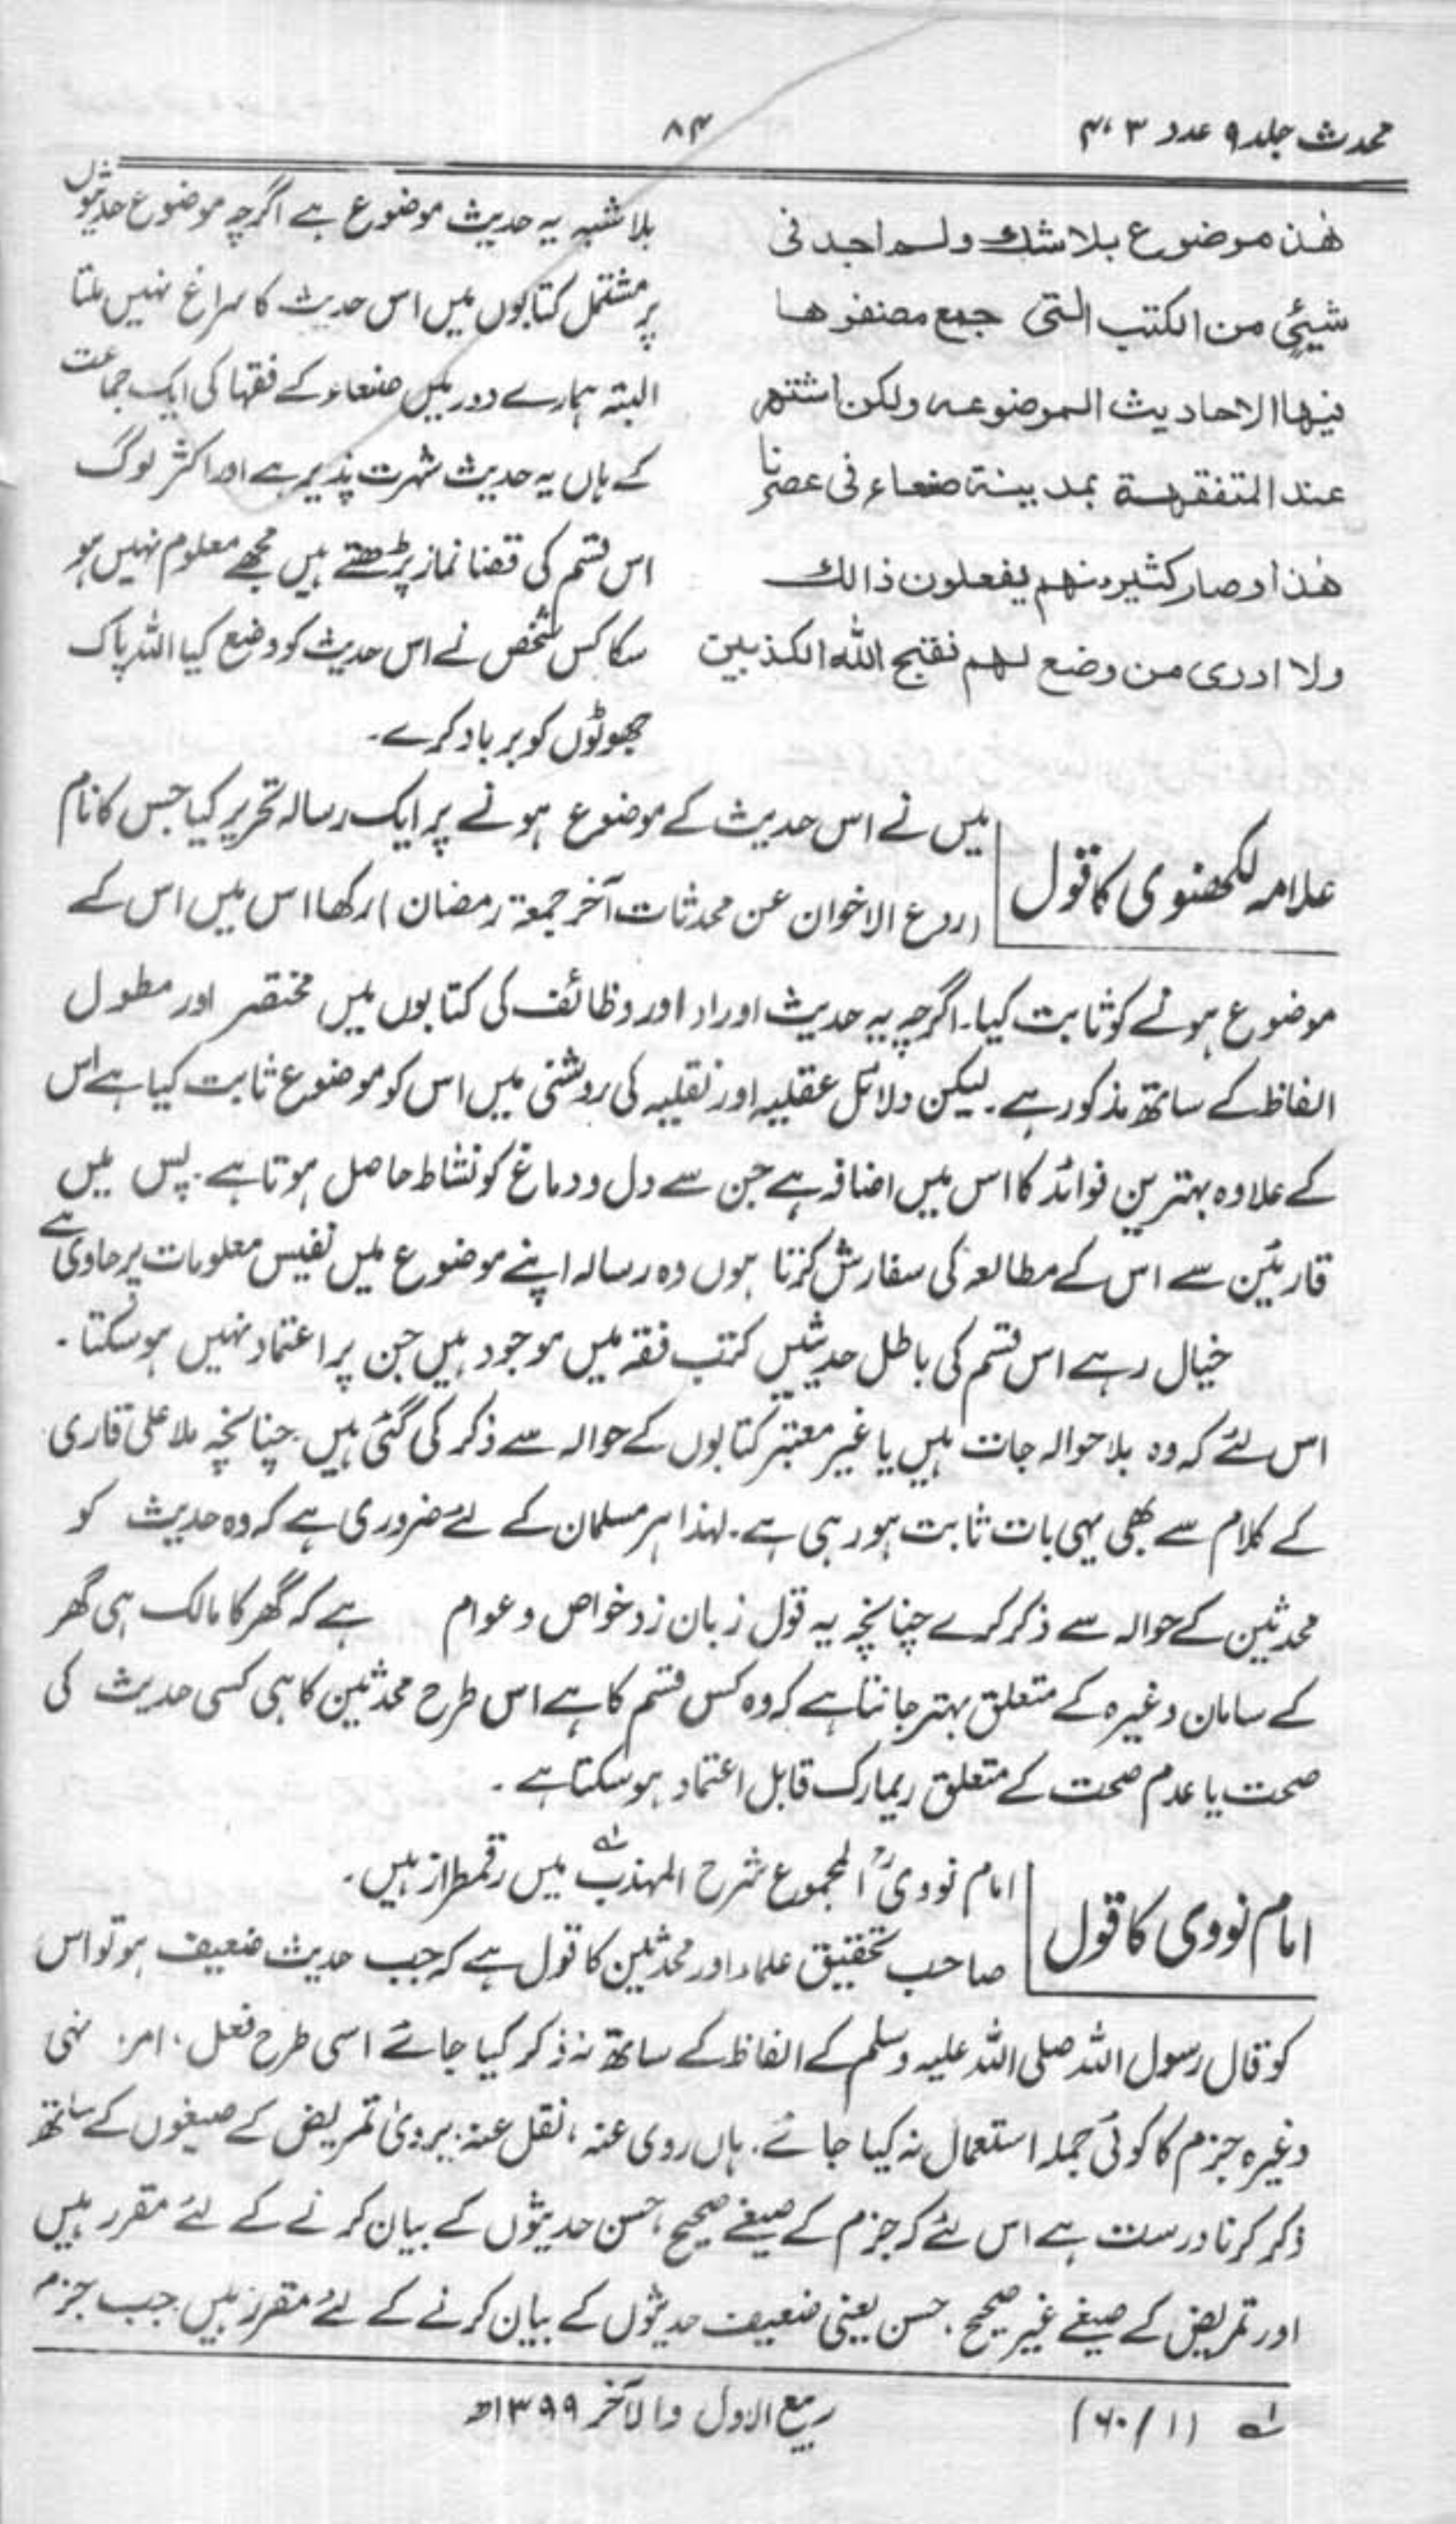 محدث جلد ۹ عدد ۳، ۴
۸۴
هٰذا موضوع بلا شك ولم اجد فی
شیئٍ من الکتب التی جمع مصنفوها
فیها الاحادیث الموضوعه ولکن اشتهر
عند المتفقهة بمدینة صنعاء فی عصرنا
هٰذا وصار کثیر منهم یفعلون ذالك
ولا ادری من وضع لهم فقبح الله الکذبین
بلا شبہ یہ حدیث موضوع ہے اگرچہ موضوع حدیثوں
پر مشتمل کتابوں میں اس حدیث کا سراغ نہیں ملتا
البتہ ہمارے دور میں صنعاء کے فقہا کی ایک جماعت
کے ہاں یہ حدیث شہرت پذیر ہے اور اکثر لوگ
اس قسم کی قضا نماز پڑھتے ہیں مجھے معلوم نہیں ہو
سکا کس شخص نے اس حدیث کو وضع کیا اللہ پاک
جھوٹوں کو برباد کرے۔
علامہ لکھنوی کا قول
میں نے اس حدیث کے موضوع ہونے پر ایک رسالہ تحریر کیا جس کا نام
(ردع الاخوان عن محدثات آخر جمعۃ رمضان) رکھا اس میں اس کے
موضوع ہونے کو ثابت کیا۔ اگرچہ یہ حدیث اوراد اور وظائف کی کتابوں میں مختصر اور مطول
الفاظ کے ساتھ مذکور ہے۔ لیکن دلائل عقلیہ اور نقلیہ کی روشنی میں اس کو موضوع ثابت کیا ہے اس
کے علاوہ بہترین فوائد کا اس میں اضافہ ہے جن سے دل و دماغ کو نشاط حاصل ہوتا ہے۔ پس میں
قارئین سے اس کے مطالعہ کی سفارش کرتا ہوں وہ رسالہ اپنے موضوع میں نفیس معلومات پر حاوی ہے
خیال رہے اس قسم کی باطل حدیثیں کتب فقہ میں موجود ہیں جن پر اعتماد نہیں ہو سکتا۔
اس لئے کہ وہ بلا حوالہ جات ہیں یا غیر معتبر کتابوں کے حوالہ سے ذکر کی گئی ہیں۔ چنانچہ ملا علی قاری
کے کلام سے بھی یہی بات ثابت ہو رہی ہے۔ لہذا ہر مسلمان کے لئے ضروری ہے کہ وہ حدیث کو
محدثین کے حوالہ سے ذکر کرے چنانچہ یہ قول زبان زد خواص و عوام ہے کہ گھر کا مالک ہی گھر
کے سامان وغیرہ کے متعلق بہتر جانتا ہے کہ وہ کس قسم کا ہے اس طرح محدثین کا ہی کسی حدیث کی
صحت یا عدم صحت کے متعلق ریمارک قابل اعتماد ہو سکتا ہے۔
امام نووی کا قول
امام نووی ؒ المجموع شرح المہذب ؂۱ میں رقمطراز ہیں۔
صاحب تحقیق علماء اور محدثین کا قول ہے کہ جب حدیث ضعیف ہو تو اس
کو قال رسول اللہ صلی اللہ علیہ وسلم کے الفاظ کے ساتھ نہ ذکر کیا جائے اسی طرح فعل، امر، نہی
وغیرہ جزم کا کوئی جملہ استعمال نہ کیا جائے۔ ہاں روی عنہ، نقل عنہ، یرویٰ تمریض کے صیغوں کے ساتھ
ذکر کرنا درست ہے اس لئے کہ جزم کے صیغے صحیح، حسن حدیثوں کے بیان کرنے کے لئے مقرر ہیں
اور تمریض کے صیغے غیر صحیح، حسن یعنی ضعیف حدیثوں کے بیان کرنے کے لئے مقرر ہیں۔ جب جزم
؂۱ (۱/۶۰)
ربیع الاول والآخر ۱۳۹۹ھ